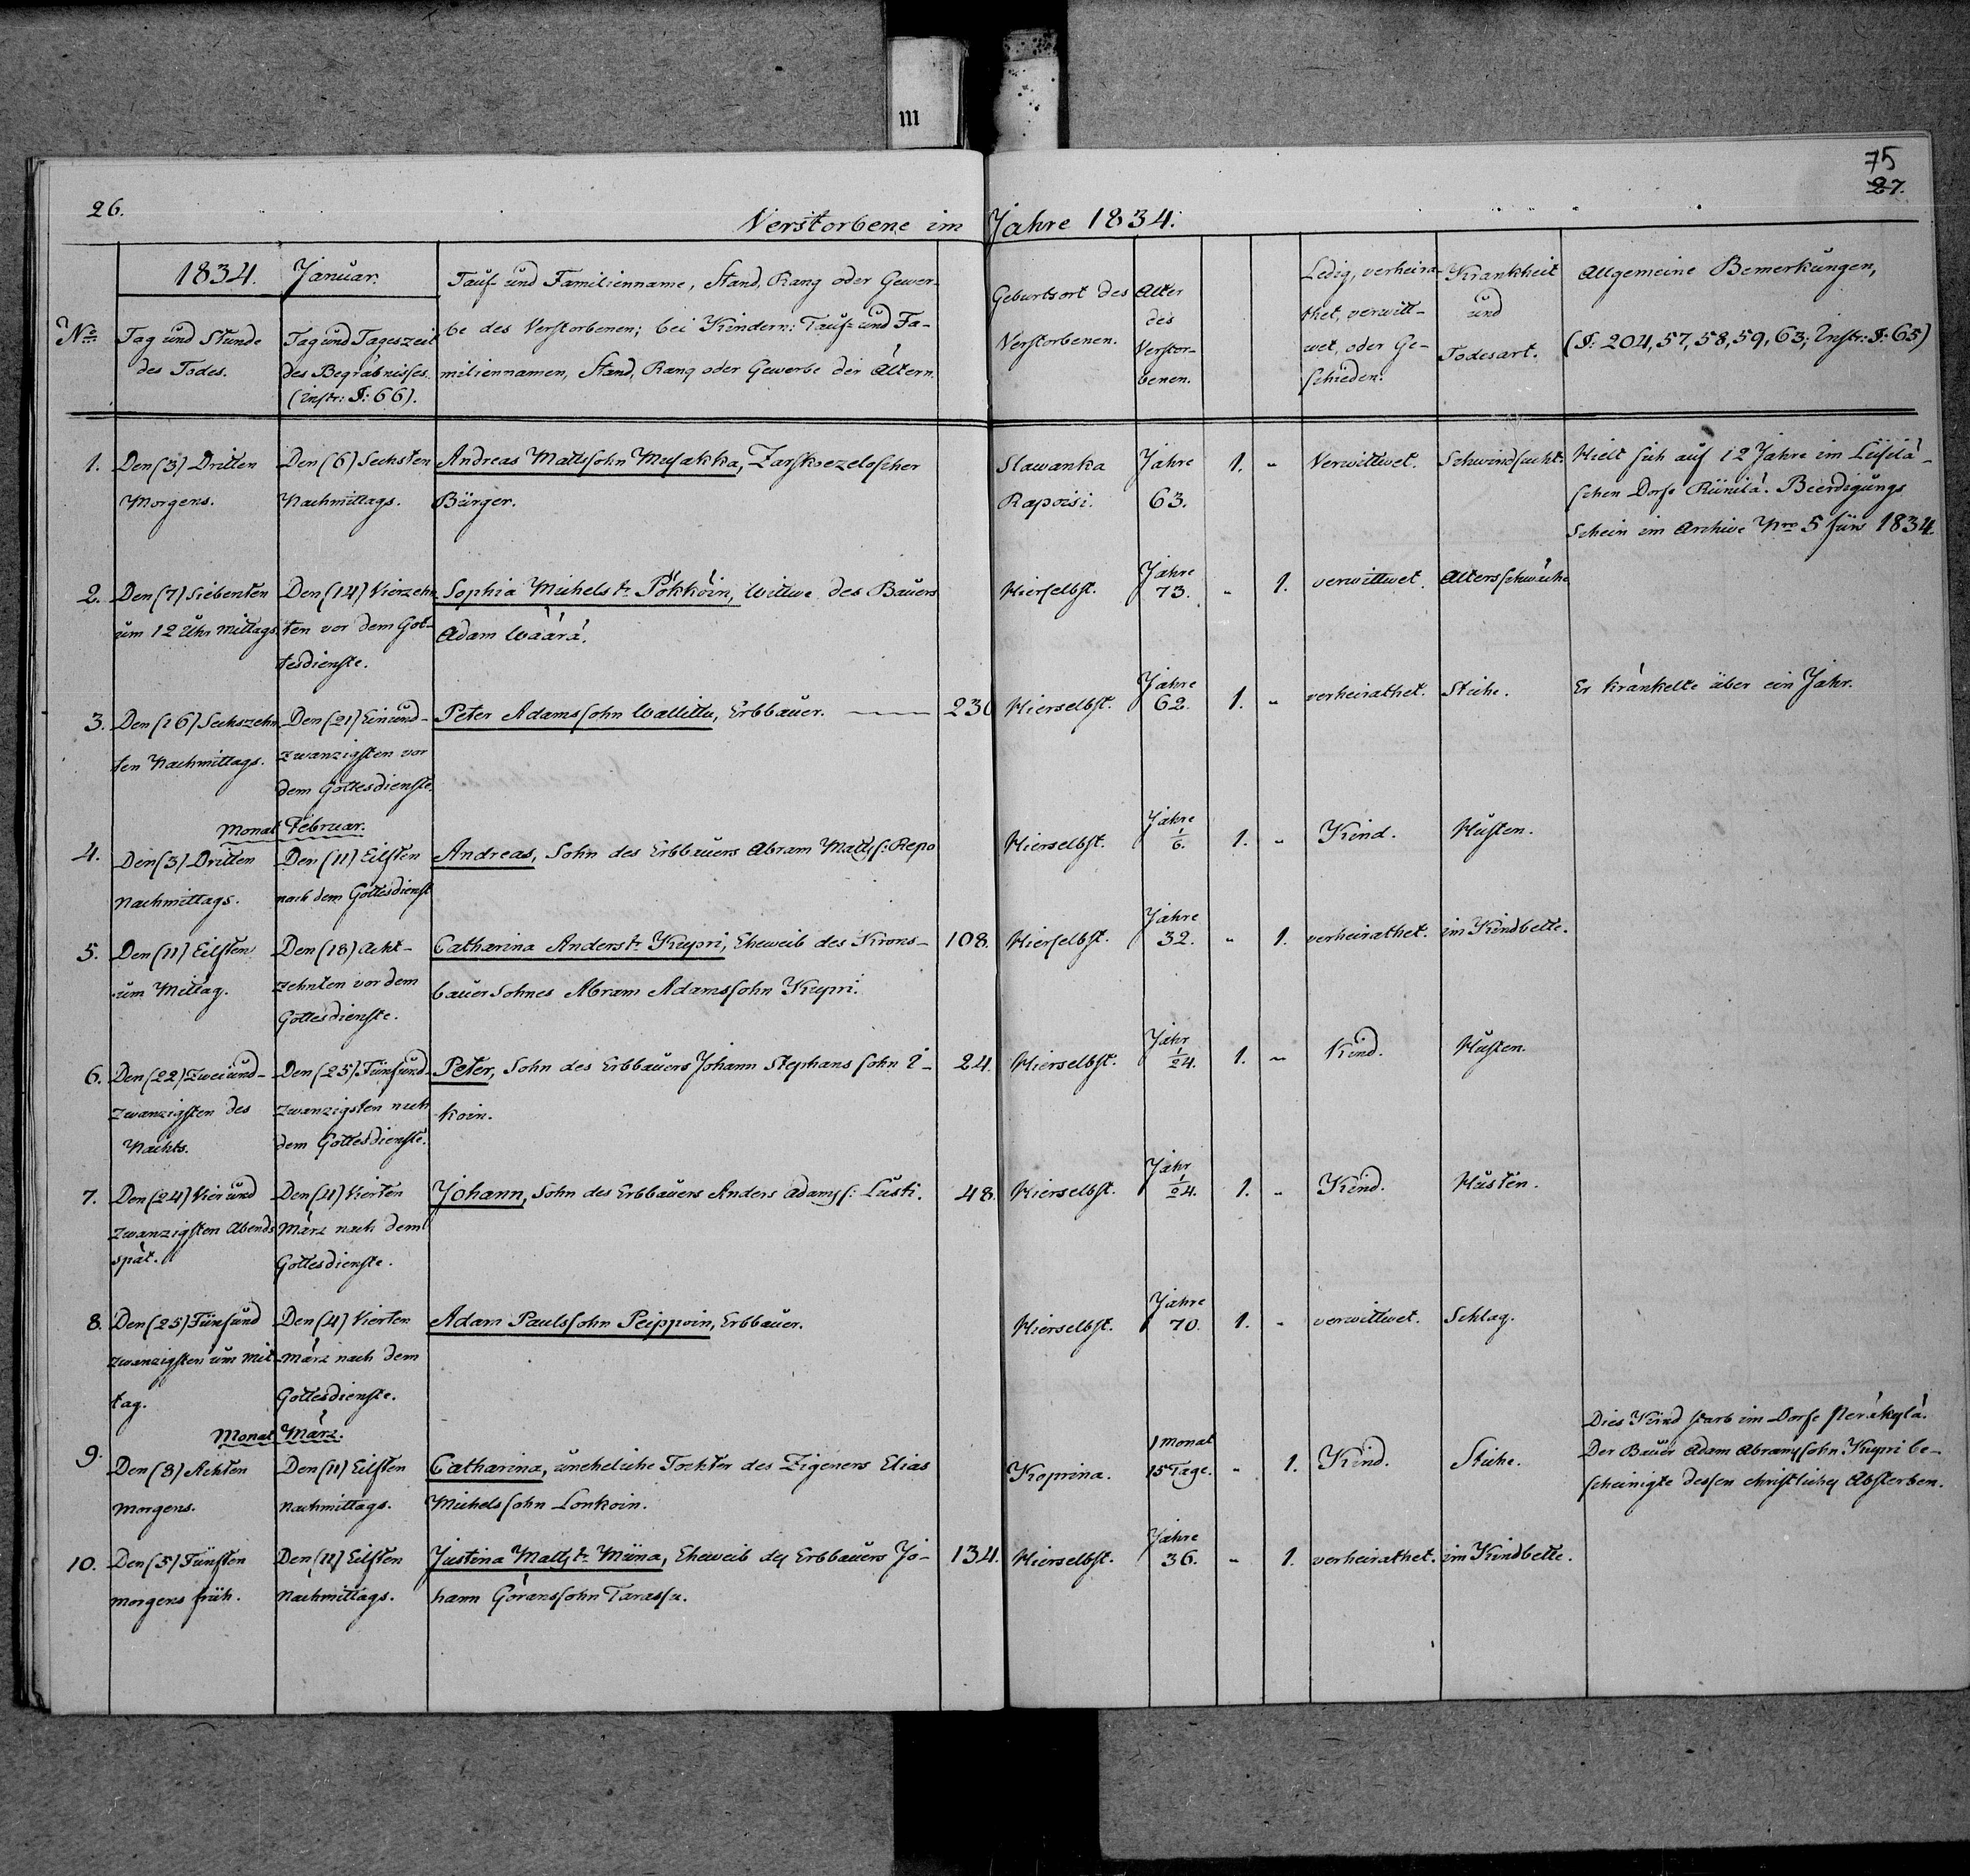 m
75
27.
26.
Verstorbene im Jahre 1834.
1834. Januar.
No
Tag und Stunde
des Todes.
Tag und Tageszeit
des Begräbnisses.
(Instr: §: 66).
Tauf- und Familienname, Stand, Rang oder Gewer-
be des Verstorbenen; bei Kindern: Tauf- und Fa-
miliennamen, Stand, Rang oder Gewerbe der Ältern.
Geburtsort des
Verstorbenen.
Alter
des
Verstor-
benen.
Ledig, verheira-
thet, verwitt-
wet, oder Ge-
schieden.
Krankheit
und
Todesart.
Allgemeine Bemerkungen,
(§: 204, 57, 58, 59, 63; Instr: §: 65)
1. Den (3) Dritten
Morgens.
Den (6) Sechsten
Nachmittags.
Andreas Mattssohn Musakka, Zarskoezeloscher
Bürger.
Slawanka
Rapoisi.
Jahre
63.
1. "
Verwittwet.
Schwindsucht.
Hielt sich auf 12 Jahre im
schen Dorfe Riinilä. Beerdigungs
Schein im Archive Nro 5 fürs 1834.
2. Den (7) Siebenten
um 12 Uhr Mittags.
Den (14) Vierzehn
ten vor dem Got-
tesdienste.
Sophia Michelst. Pökköin, Wittwe des Bauers
Adam Wäärä.
Hierselbst.
Jahre
73.
" 1.
verwittwet.
Altersschwäche
3. Den (16) Sechszehn
ten Nachmittags.
Den (21) Einund-
zwanzigsten vor
dem Gottesdienste.
Peter Adamssohn Wallittu, Erbbauer.
230
Hierselbst.
Jahre
62.
1. "
verheirathet.
Stiche.
Er kränkelte über ein Jahr.
Monat Februar.
4. Den (3) Dritten
Nachmittags.
Den (11) Eilften
nach dem Gottesdienst
Andreas, Sohn des Erbbauers Abram Matts s: Repo
Hierselbst.
Jahre
1/6.
1. "
Kind.
Husten.
5. Den (11) Eilften
um Mittag.
Den (18) Acht-
zehnten vor dem
Gottesdienste.
Catharina Anderst. Kupri, Eheweib des Krons-
bauer Sohnes Abram Adamssohn Kupri.
108.
Hierselbst.
Jahre
32.
" 1.
verheirathet.
im Kindbette.
6. Den (22) Zweiund-
zwanzigsten des
Nachts.
Den (25) Fünfund-
zwanzigsten nach
dem Gottesdienste.
Peter, Sohn des Erbbauers Johann Stephanssohn I-
koin.
24.
Hierselbst.
Jahr
1/24.
1. "
Kind.
Husten.
7. Den (24) Vierund
zwanzigsten Abends
spät.
Den (4) Vierten
März nach dem
Gottesdienste.
Johann, Sohn des Erbbauers Anders Adams s: Lusti.
48.
Hierselbst.
Jahr
1/24.
1. "
Kind.
Husten.
8. Den (25) Fünfund
zwanzigsten um Mit
tag.
Den (4) Vierten
März nach dem
Gottesdienste.
Adam Paulssohn Peippoin, Erbbauer.
Hierselbst.
Jahre
70.
1. "
verwittwet.
Schlag.
Monat März.
9. Den (8) Achten
Morgens.
Den (11) Eilften
Nachmittags.
Catharina, uneheliche Tochter des Zigeners Elias
Michelssohn Lonkoin.
Koprina.
1 Monat
15 Tage.
" 1.
Kind.
Stiche.
Dies Kind starb im Dorfe
Der Bauer Adam Abramssohn Kupri be-
scheinigte dessen christliches Absterben.
10. Den (5) Fünften
Morgens früh.
Den (11) Eilften
Nachmittags.
Justina Matts t. Miina, Eheweib des Erbbauers Jo-
hann Göranssohn Tarassu.
134.
Hierselbst.
Jahre
36.
" 1.
verheirathet.
im Kindbette.